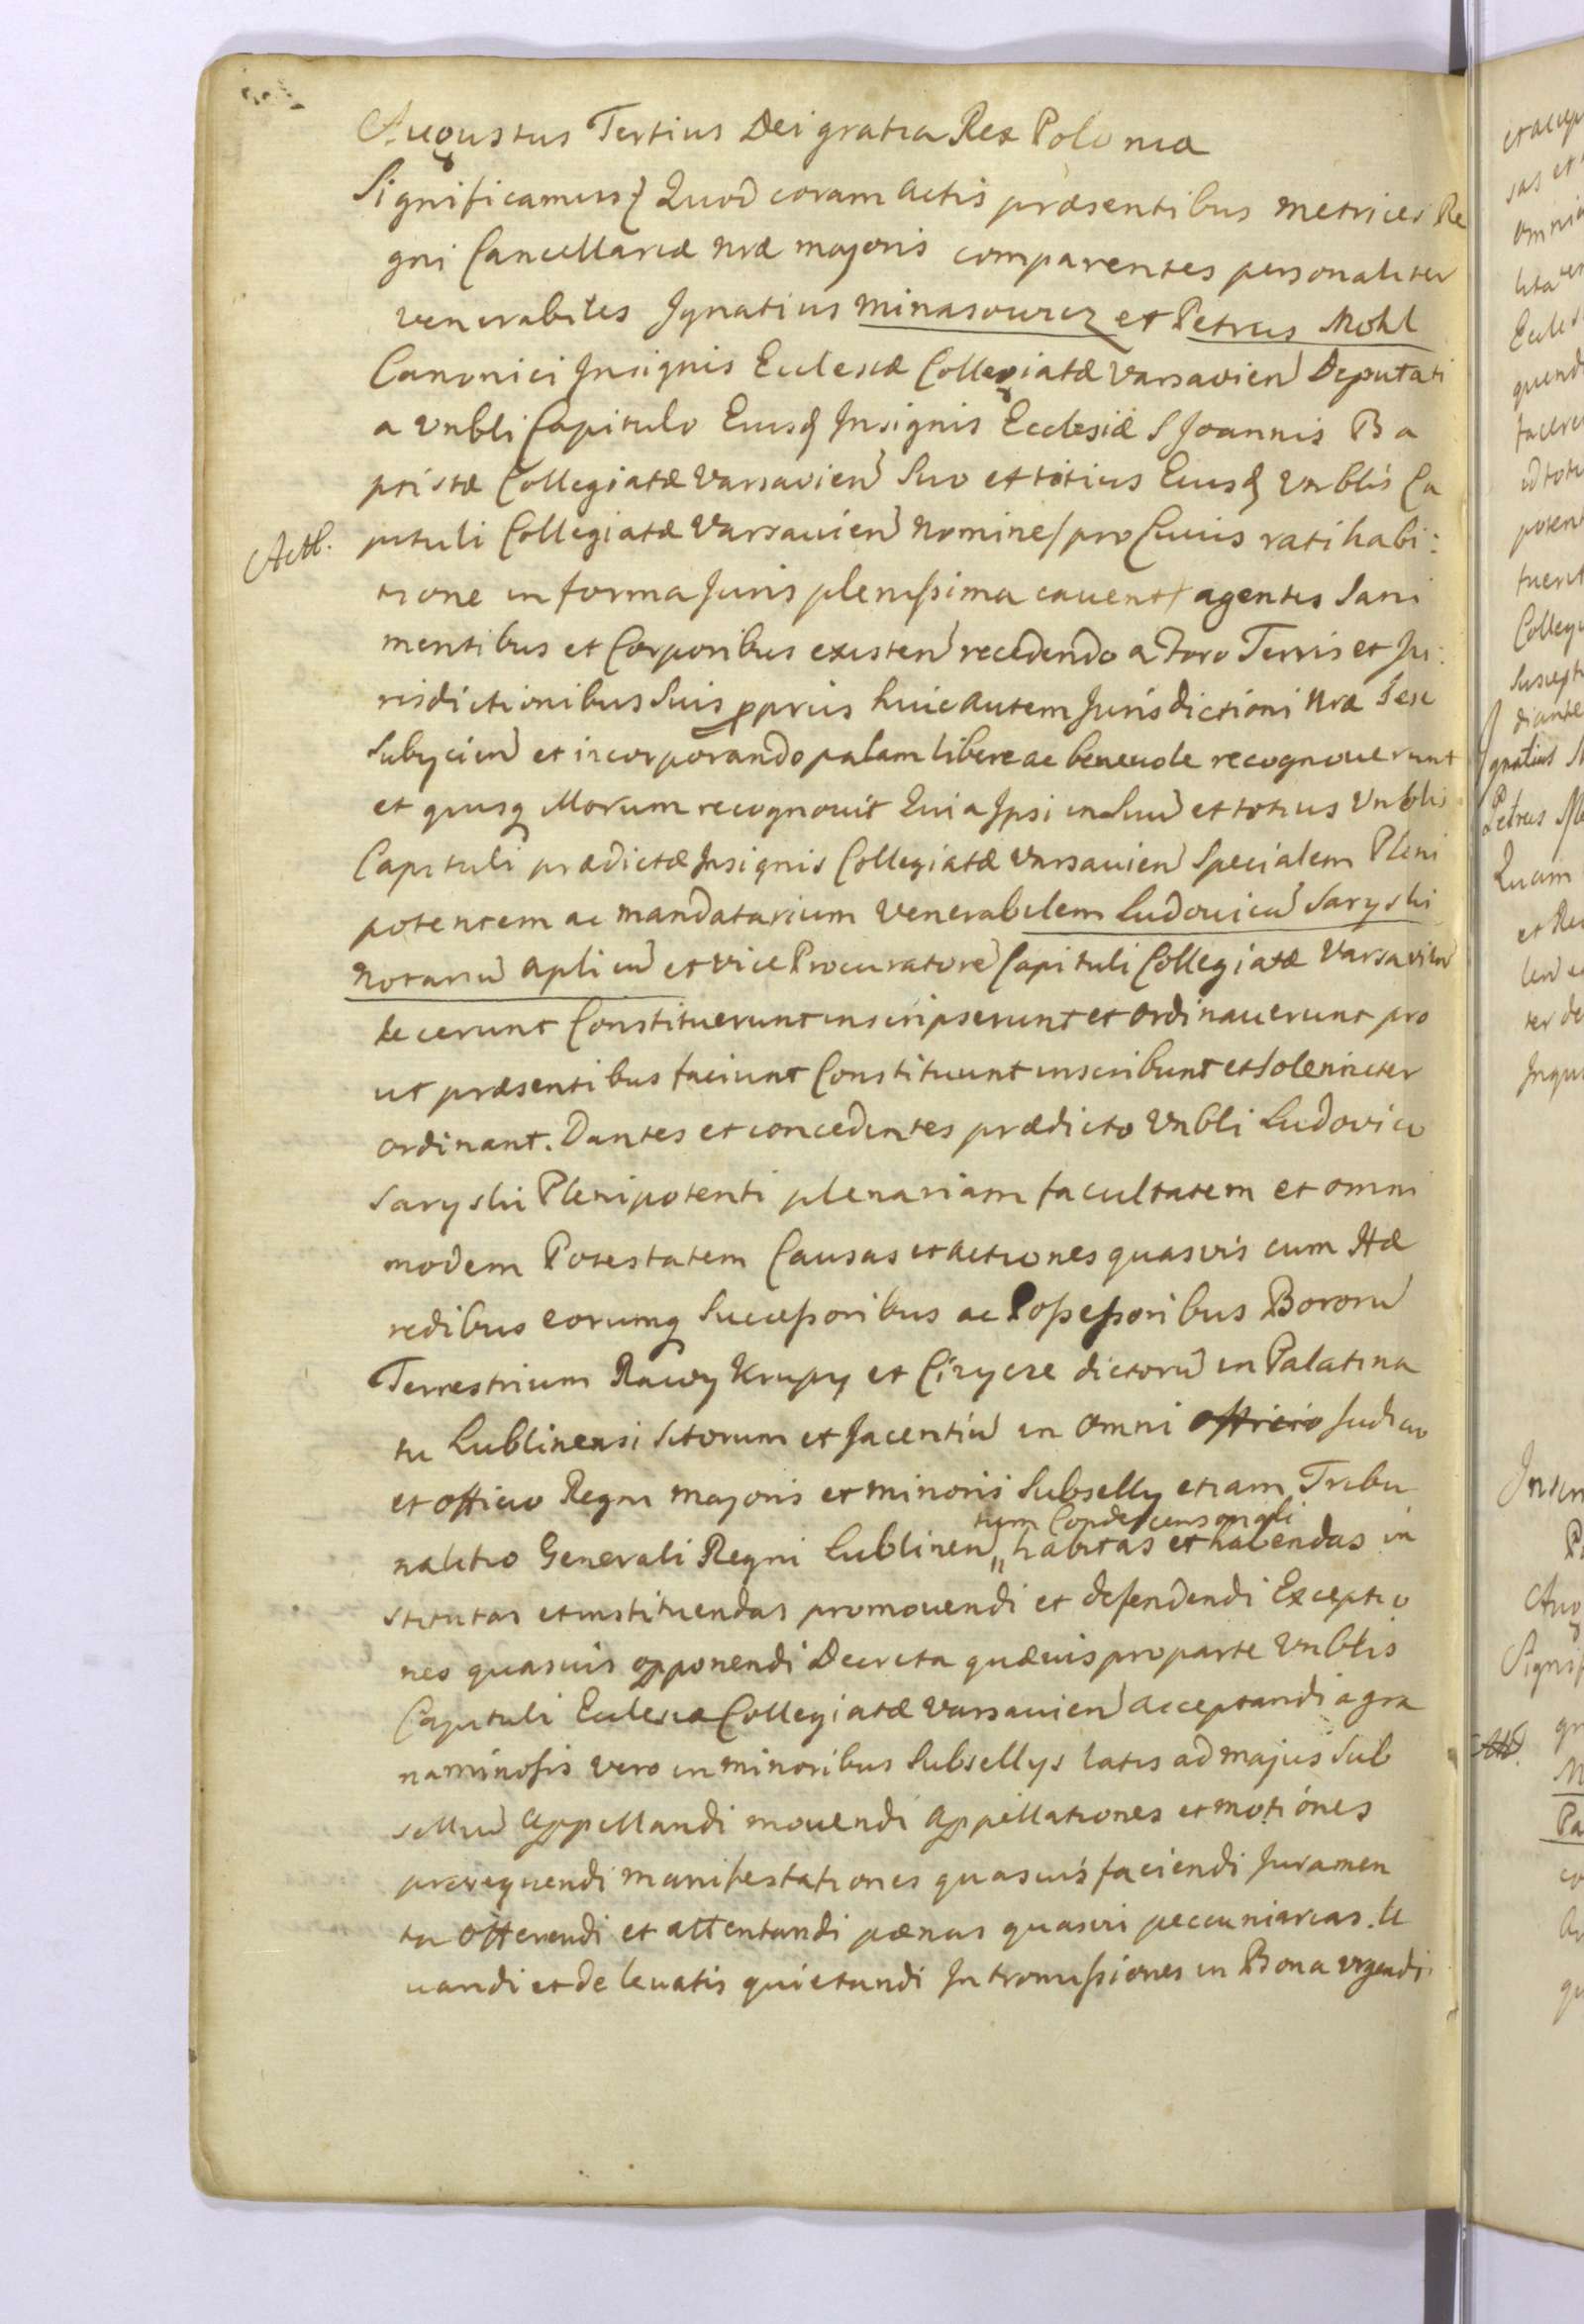 Augustus Tertius Dei gratia Rex Poloniæ
Significamus Quod coram Actis præsentibus metrices Re
gni Cancellariæ nræ majoris comparentes personaliter
venerabiles Ignatius Minasowicz et Petrus Mohl
Canonici Insignis Ecclesiæ Collegiatæ Varsavien Deputati
a Vnbli Capitulo Eiusq Insignis Ecclesiæ S Joannis Ba
ptistæ Collegiatæ Varsavien Suo et totius Eiusq Vnblis Ca
Actl. pituli Collegiatæ Varsavien Nomine/pro Cuius ratihabi:
tione in forma Juris plenissima cavent/ agentes Sani
mentibus et Corporibus existen recedendo a Foro Terris et Ju:
risdictionibus Suis ppriis huic autem Jurisdictioni Nræ Sese
Subycien et incorporando palam libere ac benevole recognoverunt
et quisq illorum recognovit Quia Ipsi in Suu et totius Vnblis
Capituli prædictæ Insignis Collegiatæ Varsavien Specialem Pleni
potentem ac mandatarium Venerabilem Ludovicu Saryski
Notariu Aplicu et vice Procuratore Capituli Collegiatæ Varsavien
fecerunt Constituerunt inscripserunt et ordinaverunt pro
ut præsentibus faciunt Constituunt inscribunt et Solenniter
ordinant. Dantes et concedentes prædicto Vnbli Ludovico
Saryski Plenipotenti plenariam facultatem et omni
modem Potestatem Causas et actiones quasvis cum Hæ
redibus eorumq Successoribus ac Possessoribus Bonoru
Terrestrium Rawy Krupy et Cizyce dictoru in Palatina
tu Lublinensi Sitorum et Jacentiu in Omni officio Judicio
et officio Regni majoris et minoris Subselly etiam Tribu
tum Condescensionali
nalitio Generali Regni Lublinen " habitas et habendas in
stitutas et instituendas promovendi et defendendi Exceptio
nes quasvis opponendi Decreta quævis pro parte Vnblis
Capituli Ecclesiæ Collegiatæ Varsavien acceptandi a gra
naminosis vero in minoribus Subsellys latis ad majus Sub
selliu Appellandi movendi Appellationes et motiones
prosequendi manifestationes quasvis faciendi Juramen
ta offerendi et attentandi pænas quasvi peccuniarias. le
vandi et de levatis quietandi Intromissiones in Bona urgendi